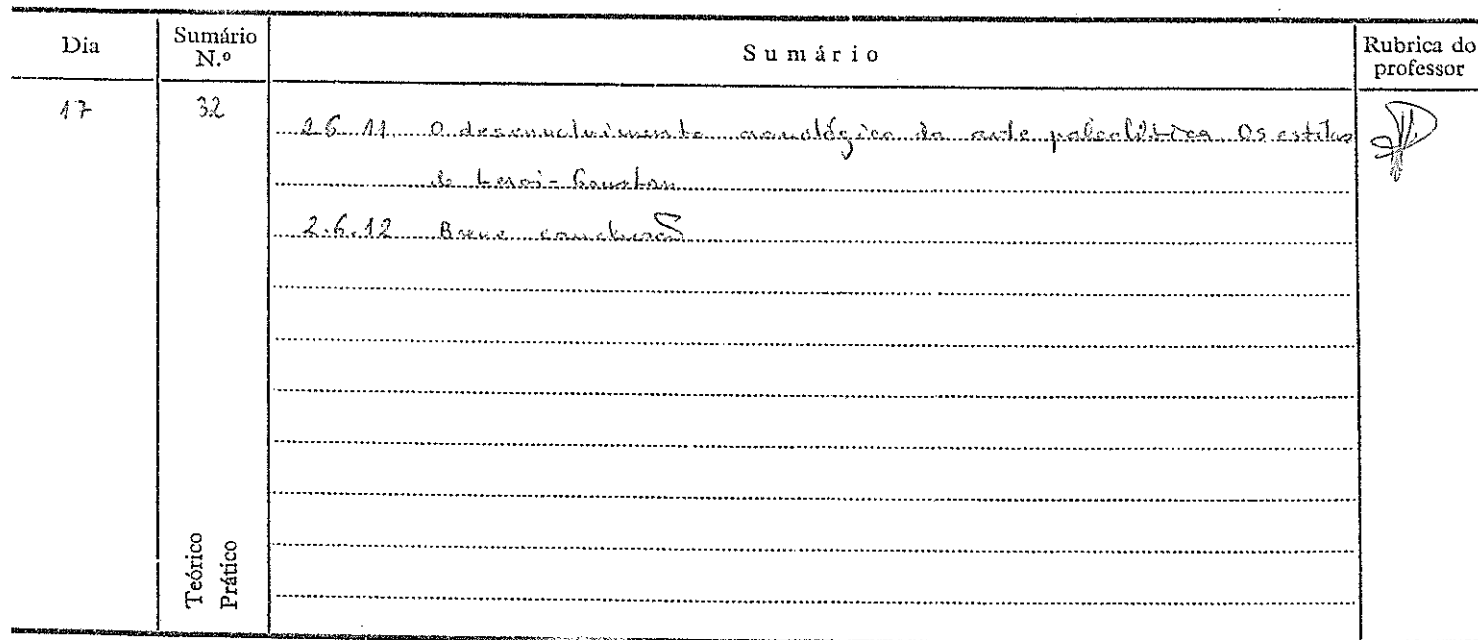 Dia
Sumário N.º
Sumário
Rubrica do professor
17
32
2.6.11 O desenvolvimento cronológico da arte paleolítica. Os estilos
de Leroi-Gourhan
2.6.12 Breve conclusão
Teórico
Prático